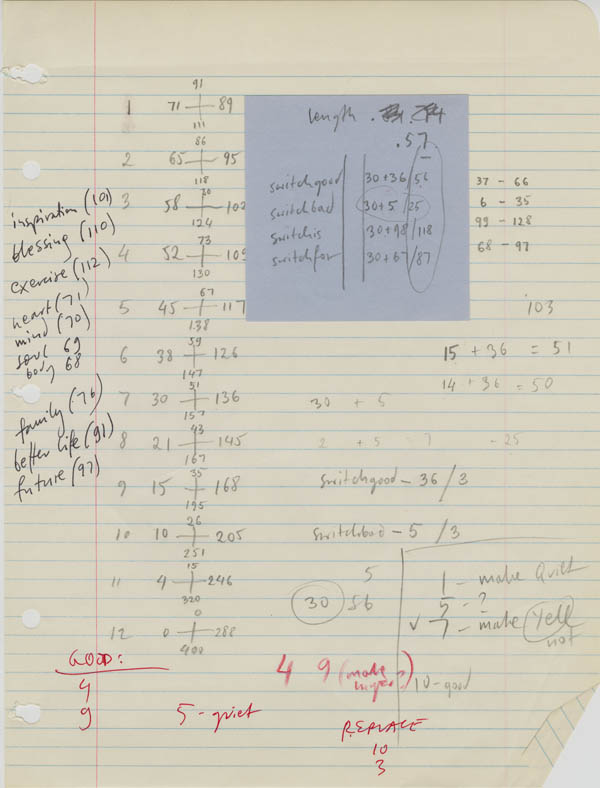 91
1 71 89
111
86
2 65 95
118
3 58 102
124
73
4 52 109
130
67
5 45 117
138
59
6 38 126
147
51
7 30 136
157
43
8 21 145
167
35
9 15 168
195
26
10 10 205
251
15
11 4 246
320
0
12 0 288
400
inspiration (101)
blessing (110)
exercise (112)
heart (71)
mind (70)
soul 69
body 68
family (76)
better life (91)
future (97)
length
.57
switchgood 30+36/56
switchbad 30+5/25
switchis 30+98/118
switchfor 30+67/87
37 - 66
6 - 35
99 - 128
68 - 97
103
15 + 36 = 51
14 + 36 = 50
30 + 5
2 + 5 7 - 25
switchgood - 36/3
switchbad - 5/3
5
30 56
1 - make Quiet
5 - ?
✓ 7 - make Yell
not
10-good
GOOD:
4
9
5 - quiet
4 9 (make
REPLACE
10
3